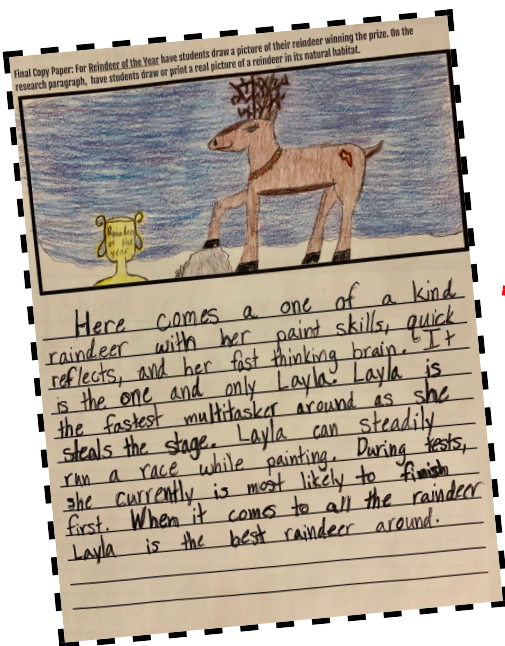 Final Copy Paper: For Reindeer of the Year have students draw a picture of their reindeer winning the prize. On the
research paragraph, have students draw or print a real picture of a reindeer in its natural habitat.
Reindeer
of the
year
Here comes a one of a kind
raindeer with her paint skills, quick
reflects, and her fast thinking brain. It
is the one and only Layla. Layla is
the fastest multitasker around as she
steals the stage. Layla can steadily
run a race while painting. During tests,
she currently is most likely to finish
first. When it comes to all the raindeer
Layla is the best raindeer around.